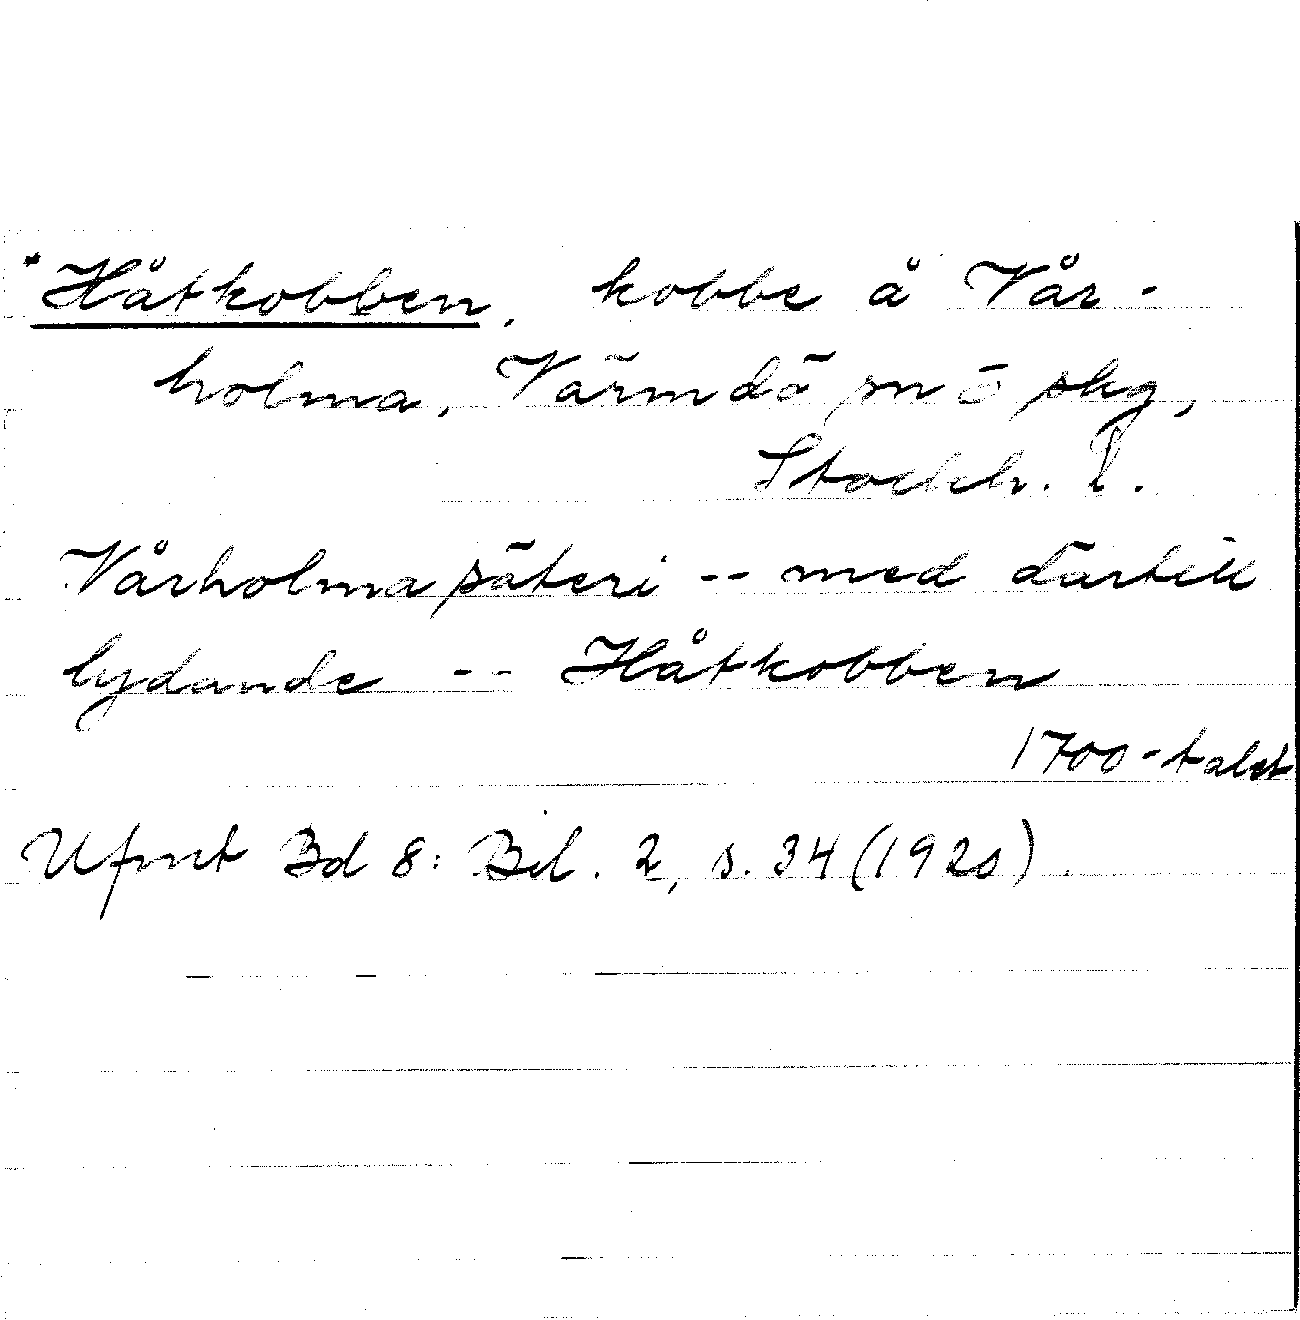 *Håtkobben, kobbe å Vår-
holma, Värmdö sn o slg,
Stockh. l.
Vårholma säteri -- med därtill
lydande -- Håtkobben
1700-talet
Ufmt Bd 8: Bil. 2, s. 34 (1920).